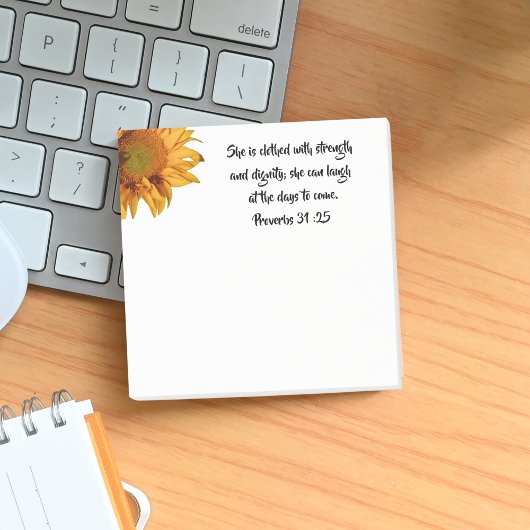 delete
P
{
[
}
]
|
\
:
;
"
'
>
.
?
/
She is clothed with strength
and dignity; she can laugh
at the days to come.
Proverbs 31 :25